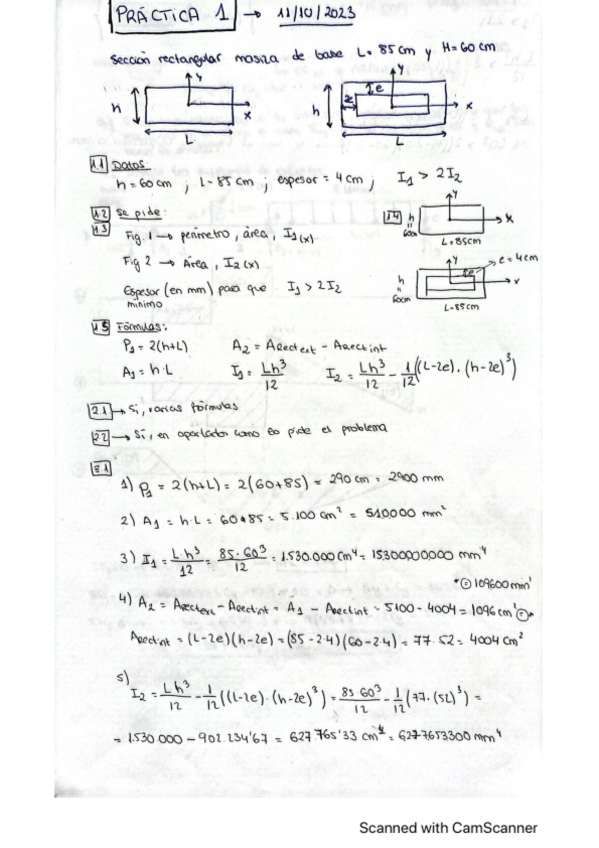 PRÁCTICA 1 → 11/10/2023
Sección rectangular maciza de base L= 85 cm y H= 60 cm
h y x L
h z e y x L
1.1 Datos:
h= 60 cm ; L= 85 cm ; espesor = 4 cm ; I1 > 2I2
1.2 Se pide:
1.3 Fig. 1 → perímetro, área, I1(x)
Fig 2 → Área, I2(x)
Espesor (en mm) para que I1 > 2I2
mínimo
1.4 h = 60cm y x L=85cm
h = 60cm y x e e=4cm L=85cm
1.5 Fórmulas:
P1 = 2(h+L) A2 = Arectext - Arectint
A1 = h·L I1 = Lh³/12 I2 = Lh³/12 - 1/12((L-2e)·(h-2e)³)
2.1 → Sí, varias fórmulas
2.2 → Sí, en apartados como lo pide el problema
3.1
1) P1 = 2(h+L) = 2(60+85) = 290 cm = 2900 mm
2) A1 = h·L = 60*85 = 5.100 cm² = 510.000 mm²
3) I1 = L·h³/12 = 85·60³/12 = 1.530.000 cm⁴ = 15300000000 mm⁴
*(=) 109600 mm²
4) A2 = Arectext - Arectint = A1 - Arectint = 5100 - 4004 = 1096 cm² (=)*
Arectint = (L-2e)(h-2e) = (85-2·4)(60-2·4) = 77·52 = 4004 cm²
5)
I2 = Lh³/12 - 1/12((L-2e)·(h-2e)³) = 85·60³/12 - 1/12(77·(52)³) =
= 1.530.000 - 902.234'67 = 627765'33 cm⁴ = 6277653300 mm⁴
Scanned with CamScanner